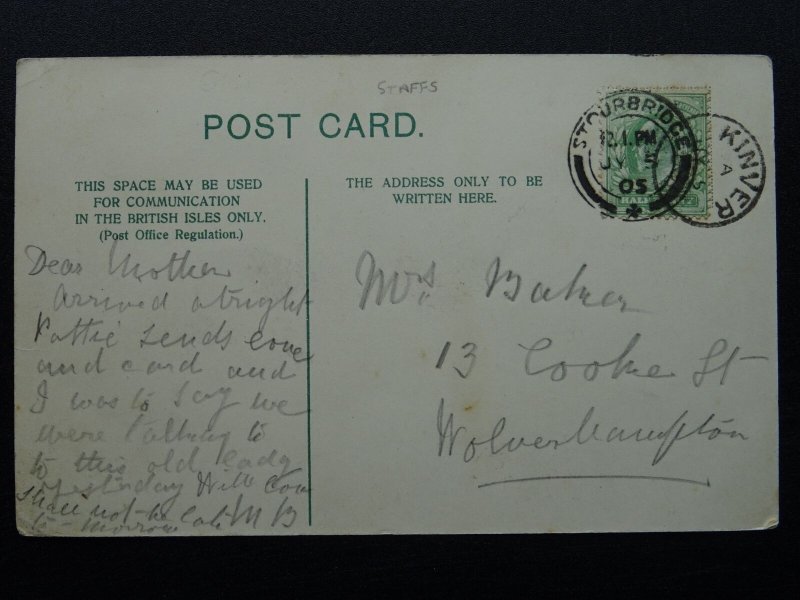 STAFFS
POST CARD.
THIS SPACE MAY BE USED
FOR COMMUNICATION
IN THE BRITISH ISLES ONLY.
(Post Office Regulation.)
THE ADDRESS ONLY TO BE
WRITTEN HERE.
STOURBRIDGE
12.1.PM
JY 5
05
KINVER
A
Dear Mother
Arrived alright
Pattie sends love
and card and
I was to say we
were talking to
to this old lady
yesterday Will Con
shall not be late M B
to-morrow
Mrs Baker
13 Cooke St
Wolverhampton